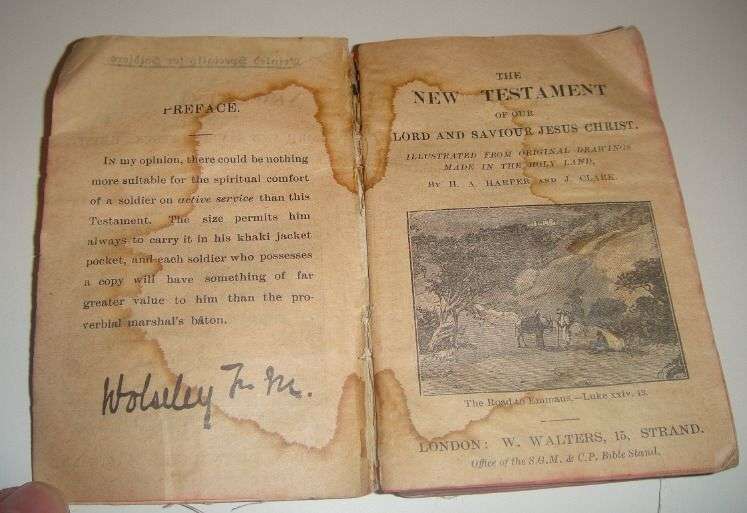 PREFACE.
IN my opinion, there could be nothing
more suitable for the spiritual comfort
of a soldier on active service than this
Testament. The size permits him
always to carry it in his khaki jacket
pocket, and each soldier who possesses
a copy will have something of far
greater value to him than the pro-
verbial marshal's bâton.
Wolseley F. M.
THE
NEW TESTAMENT
OF OUR
LORD AND SAVIOUR JESUS CHRIST.
ILLUSTRATED FROM ORIGINAL DRAWINGS
MADE IN THE HOLY LAND,
BY H. A. HARPER AND J. CLARK.
The Road to Emmaus.—Luke xxiv. 13.
LONDON: W. WALTERS, 15, STRAND.
Office of the S.G.M. & C.P. Bible Stand.